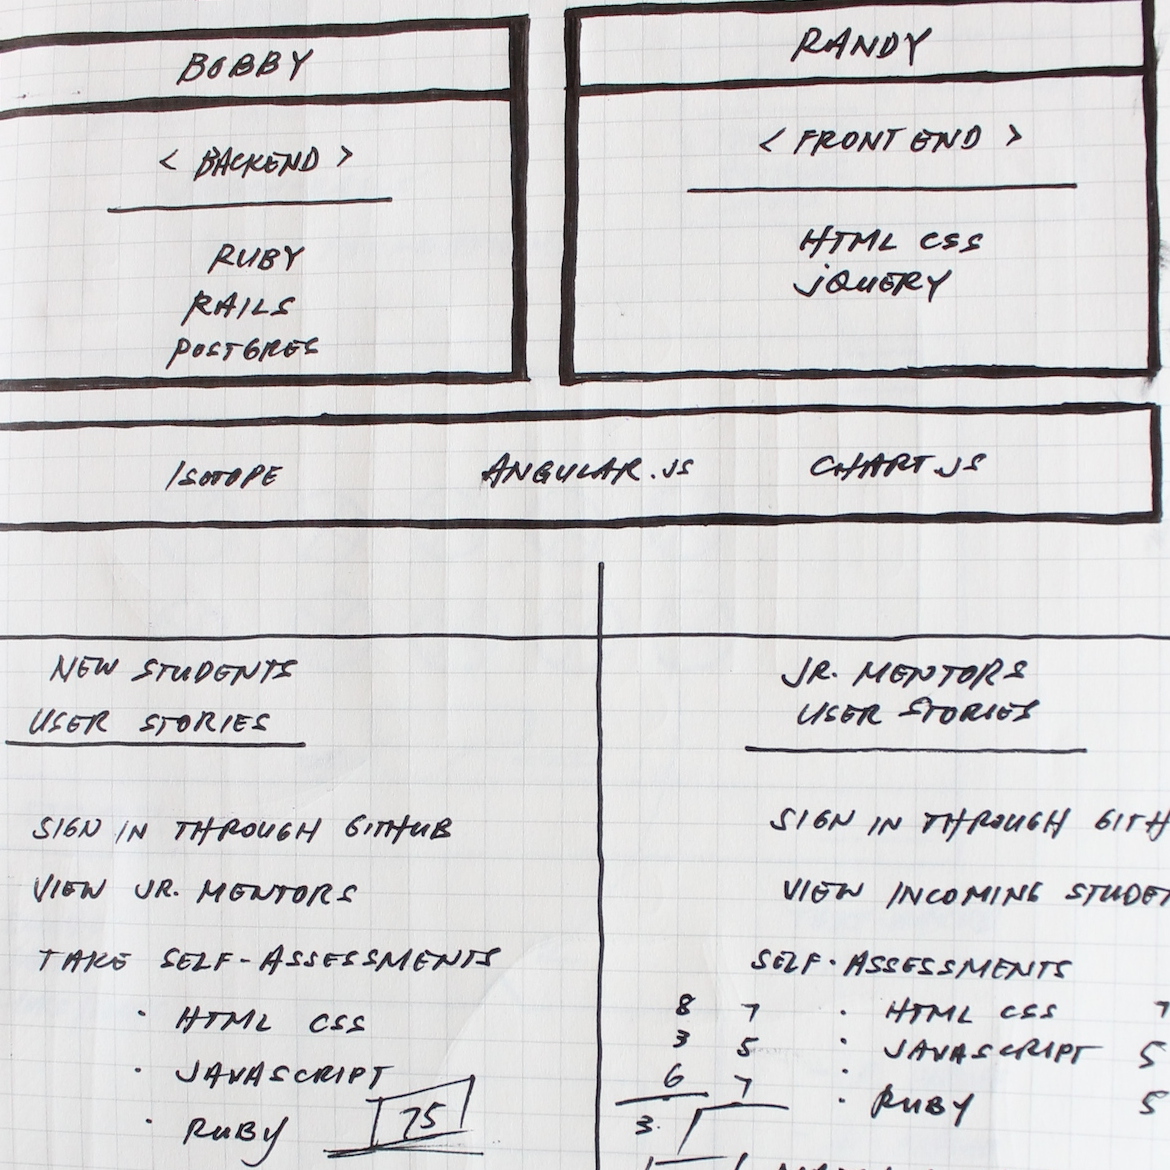 BOBBY
< BACKEND >
RUBY
RAILS
POSTGRES
RANDY
< FRONT END >
HTML CSS
jQUERY
ISOTOPE ANGULAR.JS CHART.JS
NEW STUDENTS
USER STORIES
SIGN IN THROUGH GITHUB
VIEW JR. MENTORS
TAKE SELF-ASSESSMENTS
· HTML CSS
· JAVASCRIPT
· RUBY 75
JR. MENTORS
USER STORIES
SIGN IN THROUGH GITH
VIEW INCOMING STUDE
SELF-ASSESSMENTS
8 7 · HTML CSS 7
3 5 · JAVASCRIPT 5
6 7 · RUBY 5
3.